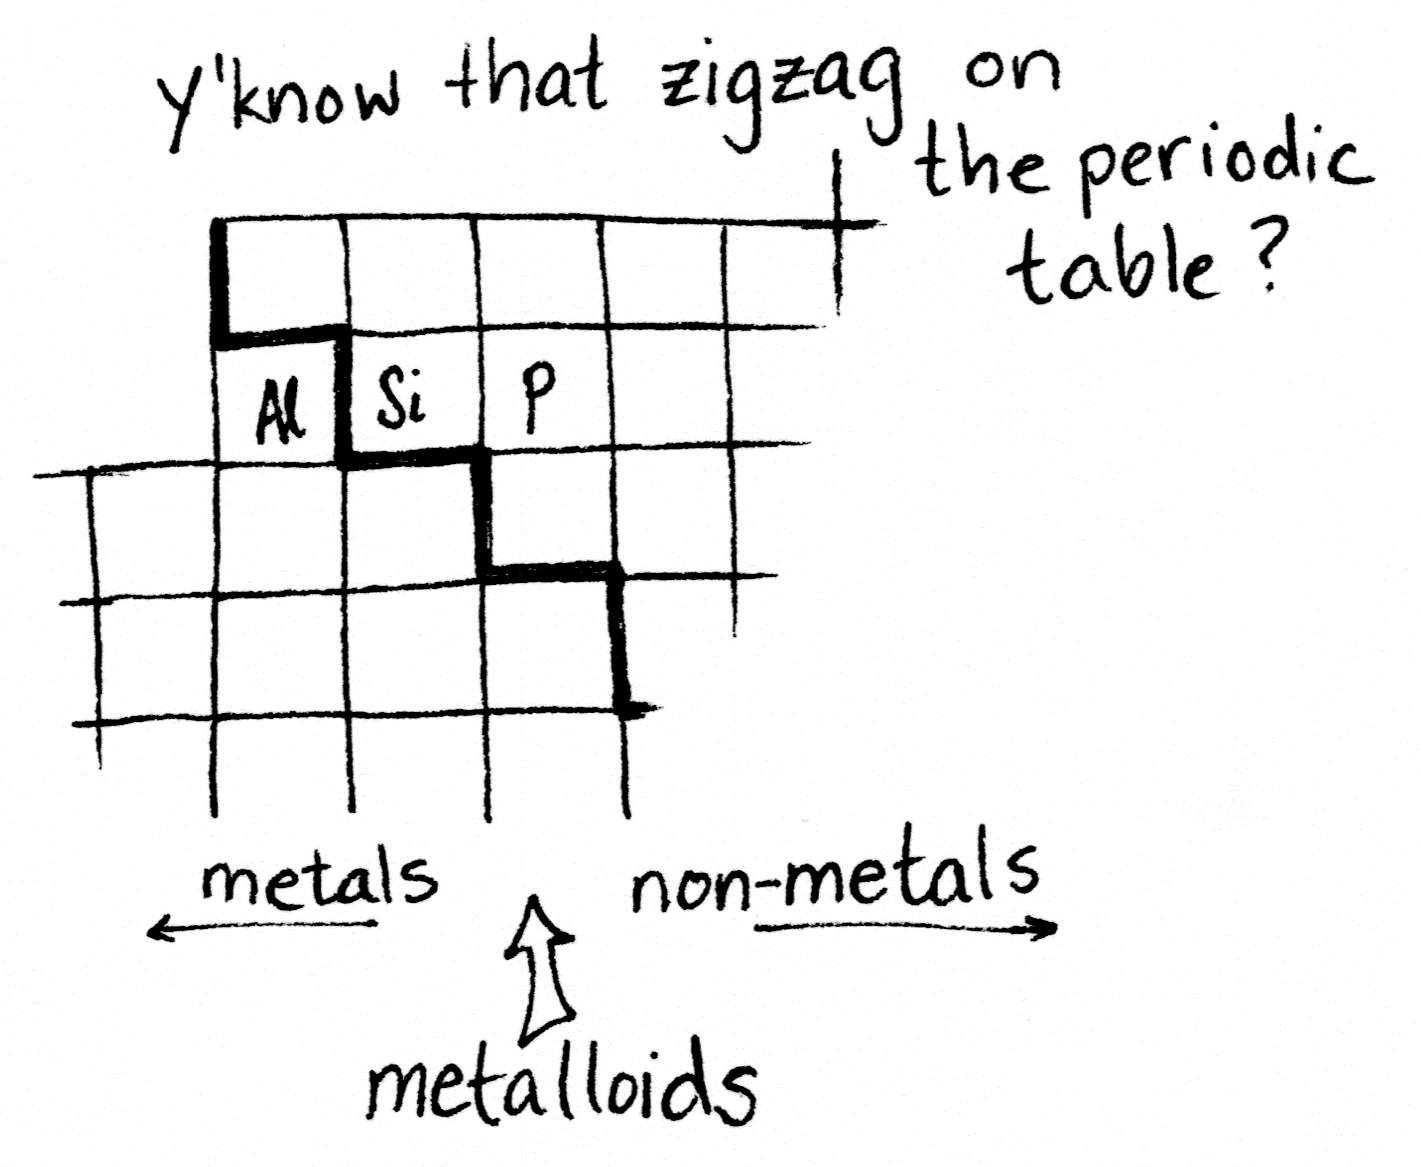 y'know that zigzag on
the periodic
table?
Al Si P
metals non-metals
metalloids